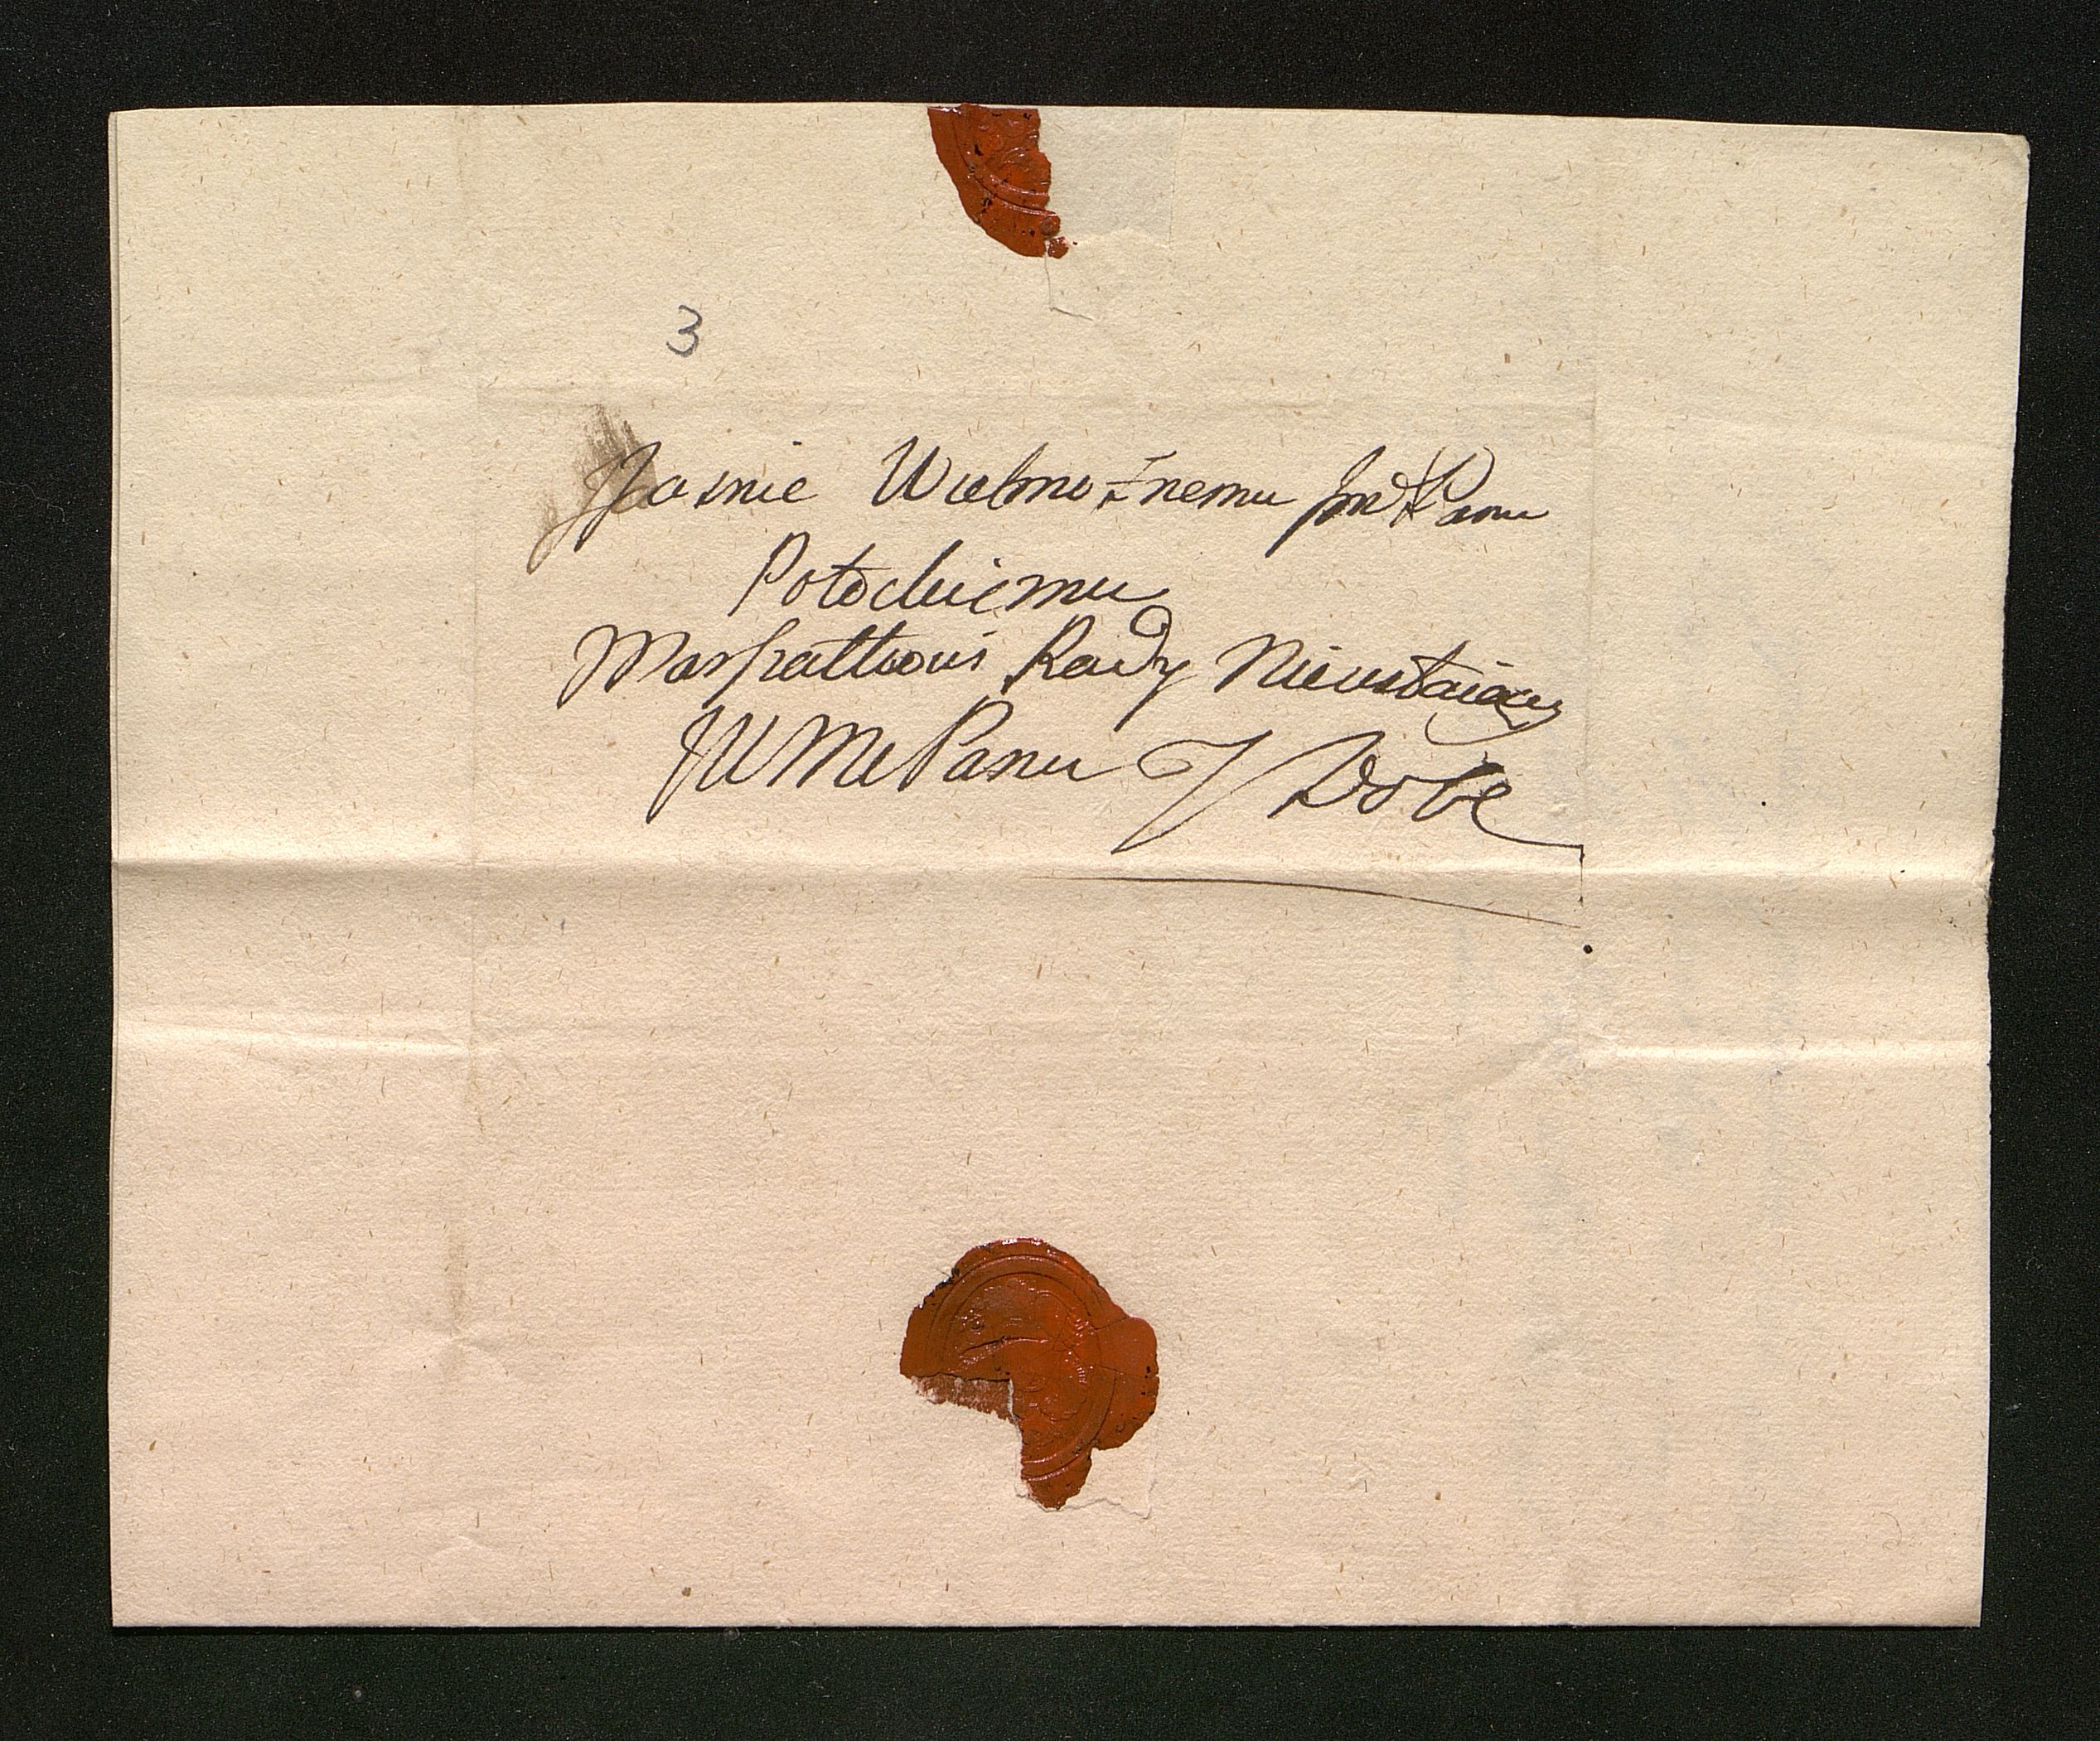 3
Jasnie Wielmoznemu Jmć Panu
Potockiemu
Marszałkowi Rady Nieustaiącey
JW Mć Panu J Dobe